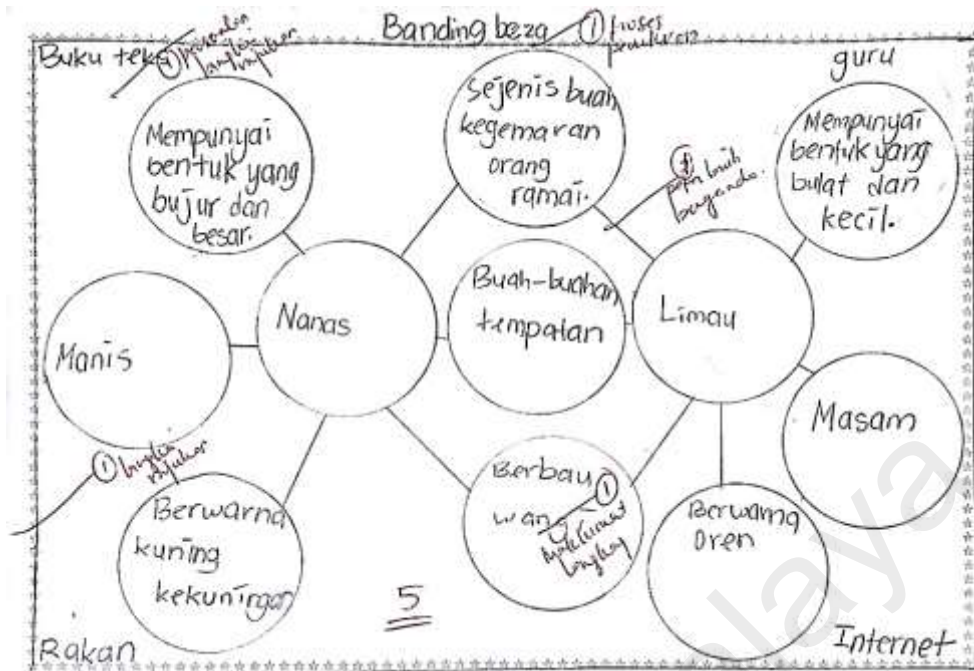 Banding beza
Buku teks
guru
Mempunyai
bentuk yang
bujur dan
besar.
Sejenis buah
kegemaran
orang
ramai.
Mempunyai
bentuk yang
bulat dan
kecil.
Nanas
Buah-buahan
tempatan
Limau
Manis
Masam
Berwarna
kuning
kekuningan
Berbau
wangi
Berwarna
Oren
5
Rakan
Internet
laya